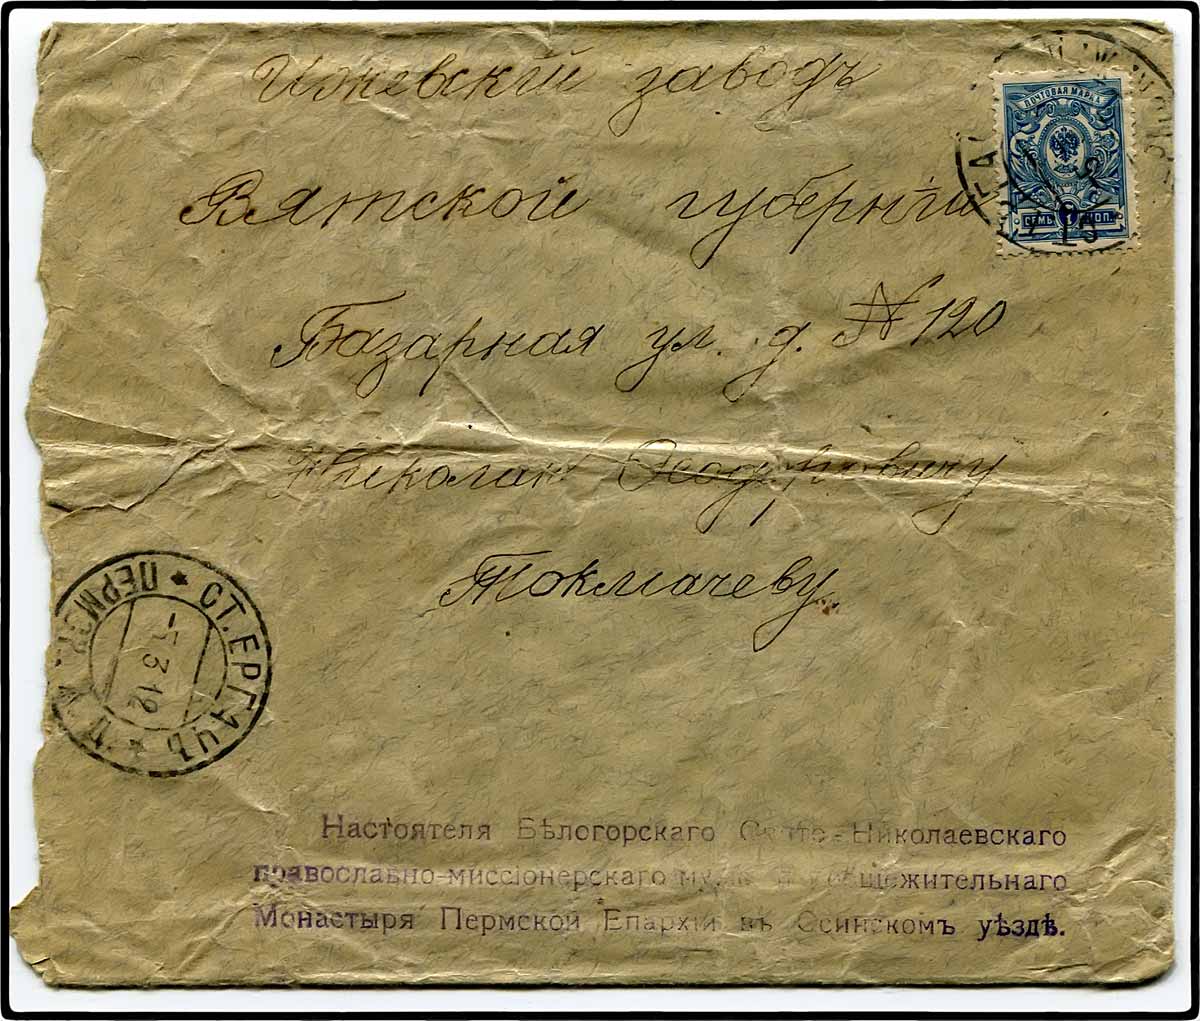 Ижевскій заводъ
ПОЧТОВАЯ МАРКА
СЕМЬ 7 КОП.
Вятской губерніи
Базарная ул. д. № 120
Николаю Ѳеодоровичу
Токмачеву
СТ. ЕРГАЧЪ * ПЕРМ *
-7.3.12
Настоятеля Бѣлогорскаго Свято-Николаевскаго
православно-миссіонерскаго общежительнаго
Монастыря Пермской Епархіи въ Осинскомъ уѣздѣ.